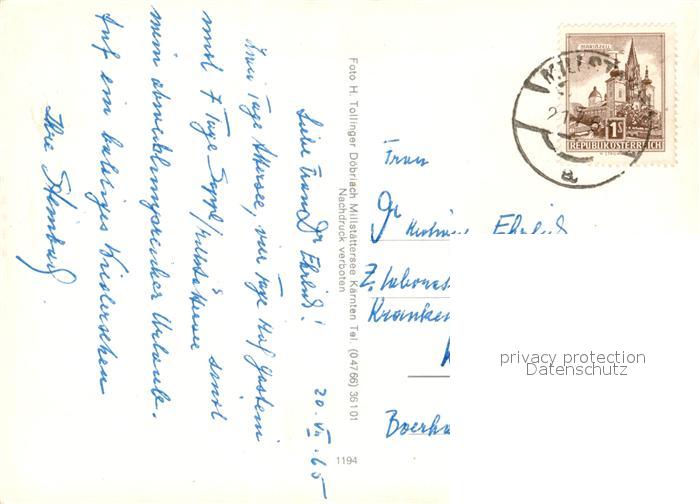 20. VII. 65
Liebe Frau Dr Ehrlich!
Zwei Tage Attersee, vier Tage Hof Gastein
und 7 Tage Millstättersee sind
mein abwechslungsreicher Urlaub.
Auf ein baldiges Wiedersehen
Ihre
Foto H. Tollinger Döbriach Millstättersee Kärnten Tel. (04766) 36101
Nachdruck verboten
1194
MARIAZELL
1S
REPUBLIK ÖSTERREICH
MILLST
a
Frau
Dr Ehrlich
Z. Labora
Kranken
Boerha
privacy protection
Datenschutz